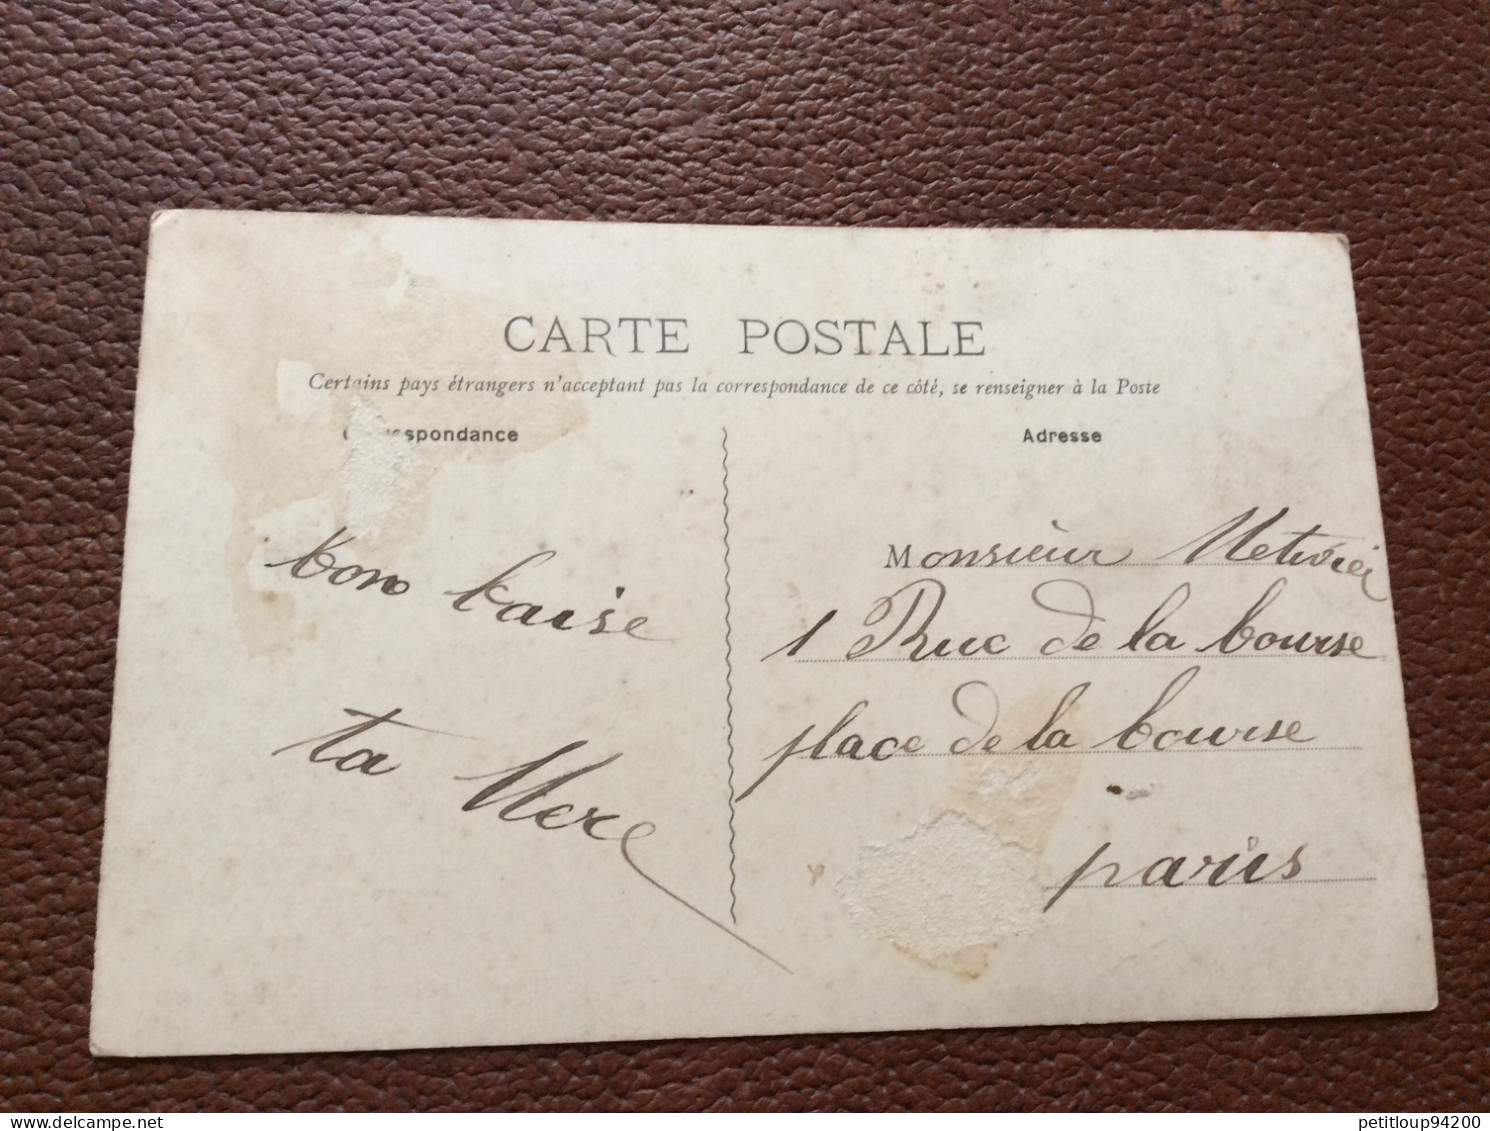 CARTE POSTALE
Certains pays étrangers n'acceptant pas la correspondance de ce côté, se renseigner à la Poste
Correspondance
Adresse
bon baise
ta Mere
Monsieur Metivier
1 Rue de la bourse
place de la bourse
paris
petitloup94200
delcampe.net